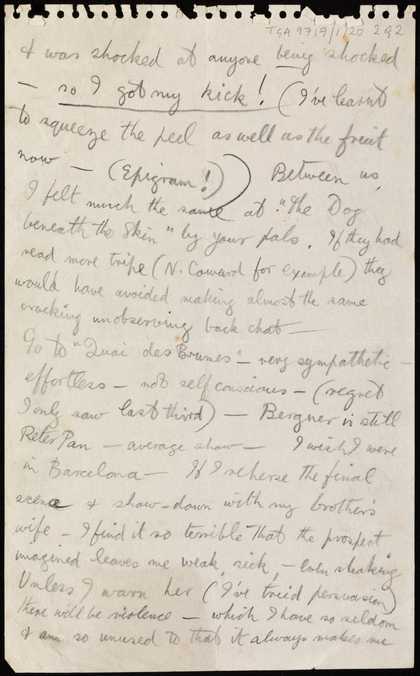 TGA 9719/1/20 2 of 2
& was shocked at anyone being shocked
– so I got my kick! (I've learnt
to squeeze the peel as well as the fruit
now – (Epigram!)) Between us,
I felt much the same at "The Dog
beneath the Skin" by your pals. If they had
read more tripe (N. Coward for example) they
would have avoided making almost the same
cracking unobserving back chat –
Go to "Quai des Brumes" – very sympathetic –
effortless – not self conscious – (regret
I only saw last third) – Bergner is still
Peter Pan – average show – I wish I were
in Barcelona – If I reherse the final
scene & show-down with my brother's
wife – I find it so terrible that the prospect
imagined leaves me weak, sick, – even shaking
Unless I warn her (I've tried persuasion)
there will be violence – which I have so seldom
& am so unused to that it always makes me